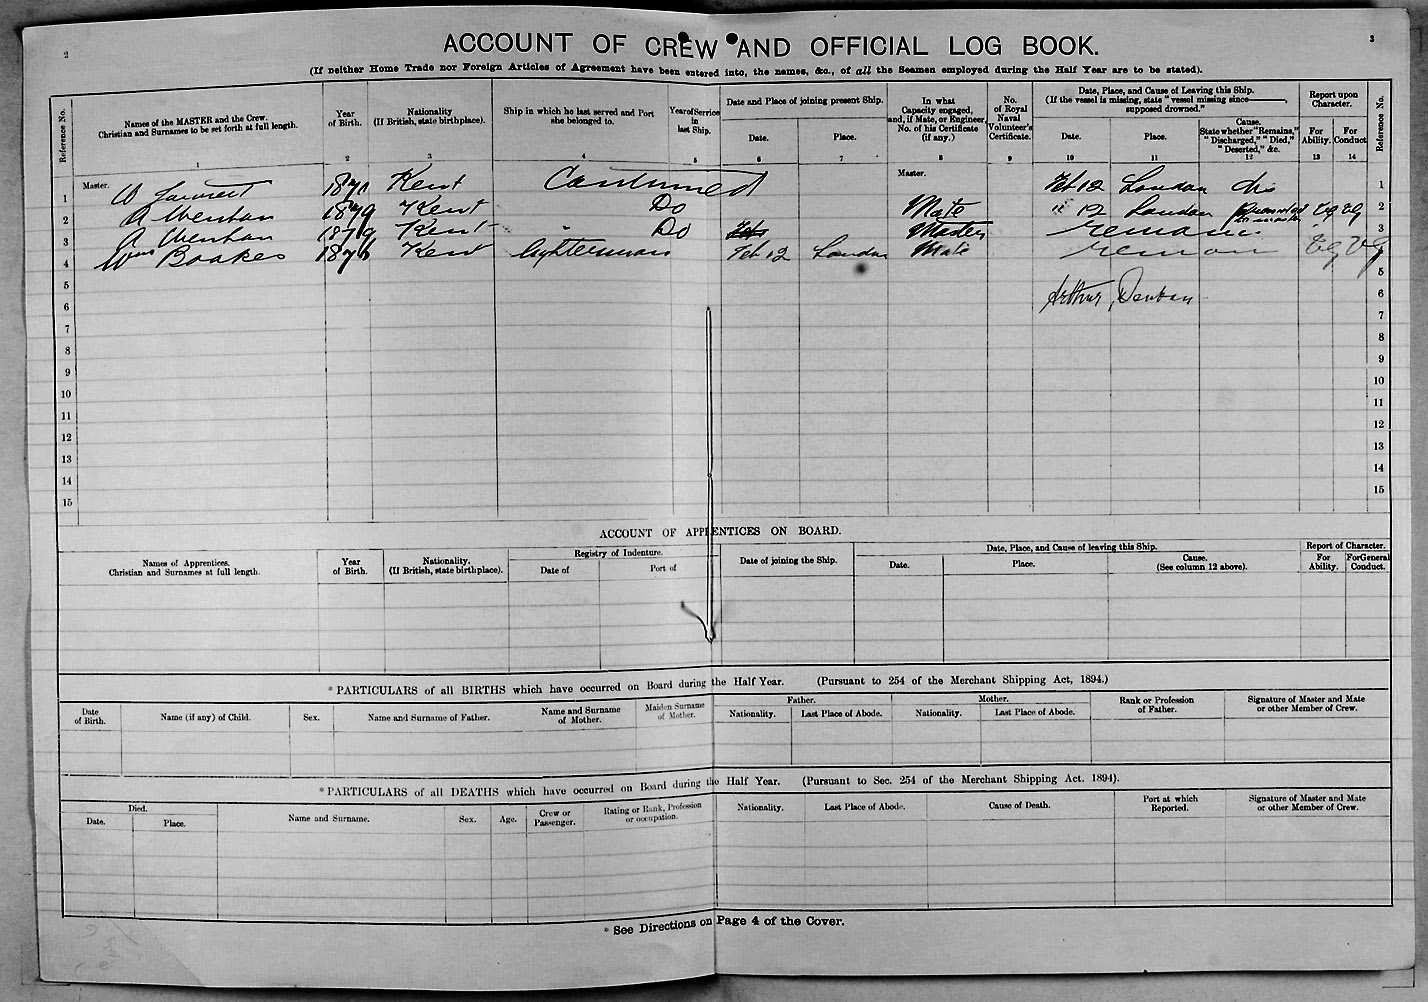 2
3
ACCOUNT OF CREW AND OFFICIAL LOG BOOK.
(If neither Home Trade nor Foreign Articles of Agreement have been entered into, the names, &c., of all the Seamen employed during the Half Year are to be stated).
Reference No.
Names of the MASTER and the Crew.
Christian and Surnames to be set forth at full length.
1
Year
of Birth.
2
Nationality
(If British, state birthplace).
3
Ship in which he last served and Port
she belonged to.
4
Year of Service
in
last Ship.
5
Date and Place of joining present Ship.
Date.
6
Place.
7
In what
Capacity engaged,
and, if Mate, or Engineer,
No. of his Certificate
(if any.)
8
No.
of Royal
Naval
Volunteer's
Certificate.
9
Date, Place, and Cause of Leaving this Ship.
(If the vessel is missing, state "vessel missing since———,
supposed drowned."
Date.
10
Place.
11
Cause.
State whether "Remains,"
"Discharged," "Died,"
"Deserted," &c.
12
Report upon
Character.
For
Ability.
13
For
Conduct
14
Reference No.
1 Master. W Kent Continued Master. Feb 12 London dis 1
2 A 1879 Kent Do Mate " 12 London Vg Vg 2
3 A 1879 Kent " Do Master remains 3
4 Wm Boakes 1876 Kent lighterman Feb 12 London Mate remain Vg Vg
5 5
6 Arthur 6
7 7
8 8
9 9
10 10
11 11
12 12
13 13
14 14
15 15
ACCOUNT OF APPRENTICES ON BOARD.
Names of Apprentices.
Christian and Surnames at full length.
Year
of Birth.
Nationality.
(If British, state birthplace).
Registry of Indenture.
Date of
Port of
Date of joining the Ship.
Date, Place, and Cause of leaving this Ship.
Date.
Place.
Cause.
(See column 12 above).
Report of Character.
For
Ability.
For General
Conduct.
*PARTICULARS of all BIRTHS which have occurred on Board during the Half Year. (Pursuant to 254 of the Merchant Shipping Act, 1894.)
Date
of Birth.
Name (if any) of Child.
Sex.
Name and Surname of Father.
Name and Surname
of Mother.
Maiden Surname
of Mother.
Father.
Nationality.
Last Place of Abode.
Mother.
Nationality.
Last Place of Abode.
Rank or Profession
of Father.
Signature of Master and Mate
or other Member of Crew.
*PARTICULARS of all DEATHS which have occurred on Board during the Half Year. (Pursuant to Sec. 254 of the Merchant Shipping Act. 1894).
Died.
Date.
Place.
Name and Surname.
Sex.
Age.
Crew or
Passenger.
Rating or Rank, Profession
or occupation.
Nationality.
Last Place of Abode.
Cause of Death.
Port at which
Reported.
Signature of Master and Mate
or other Member of Crew.
* See Directions on Page 4 of the Cover.